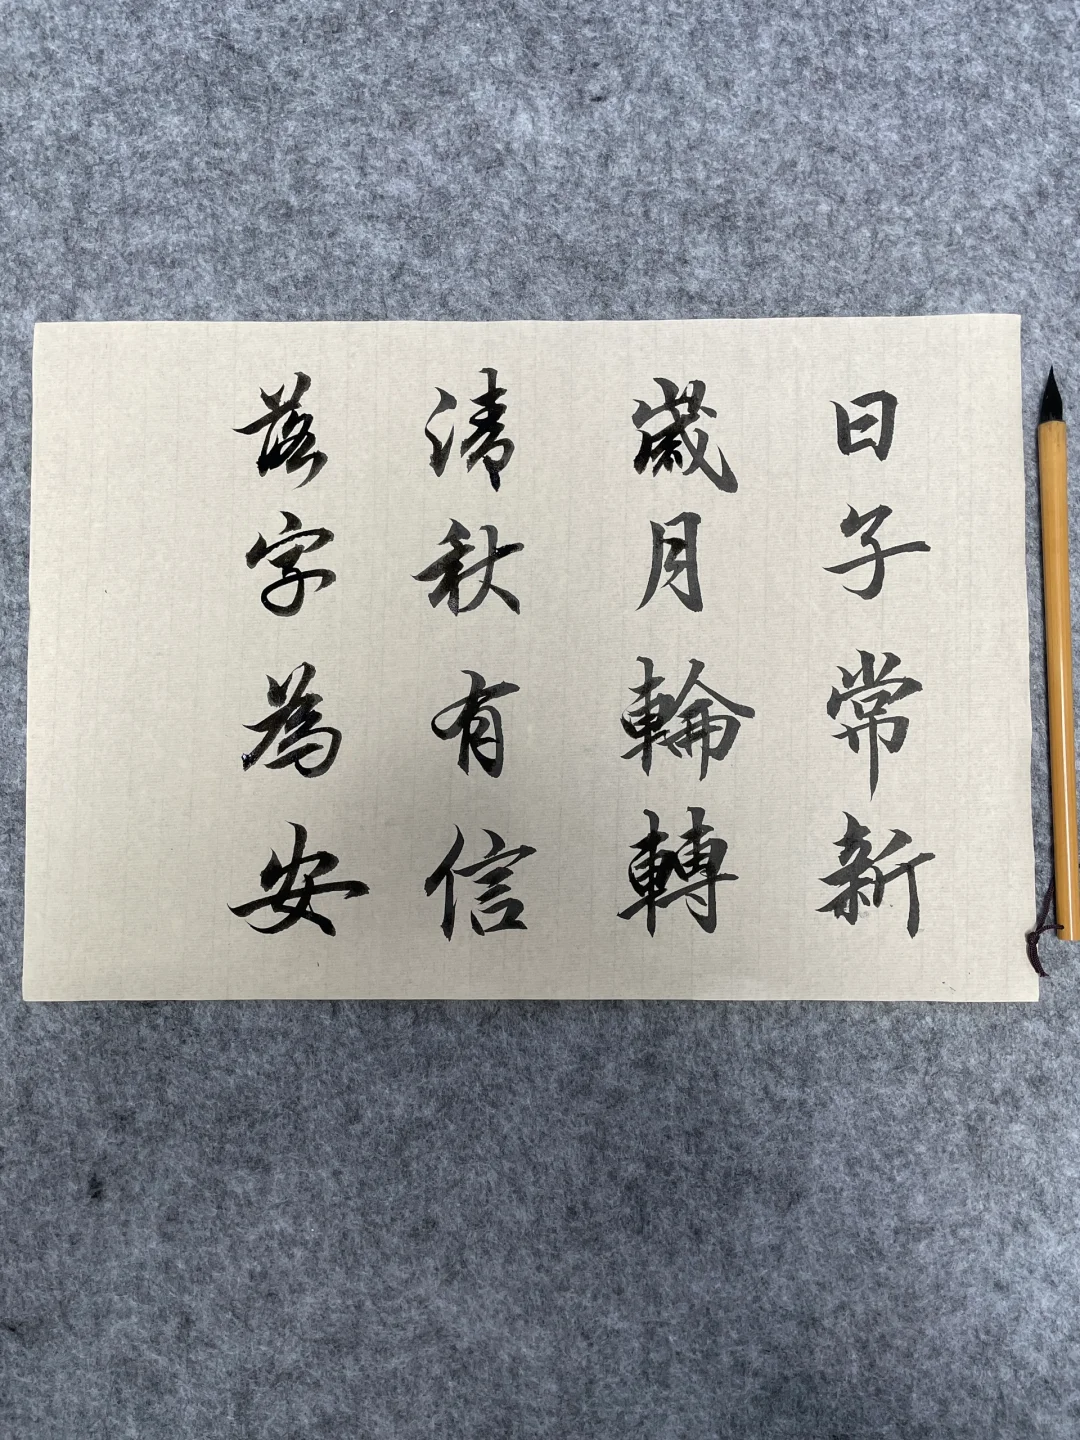 日子常新
歲月輪轉
清秋有信
落字為安